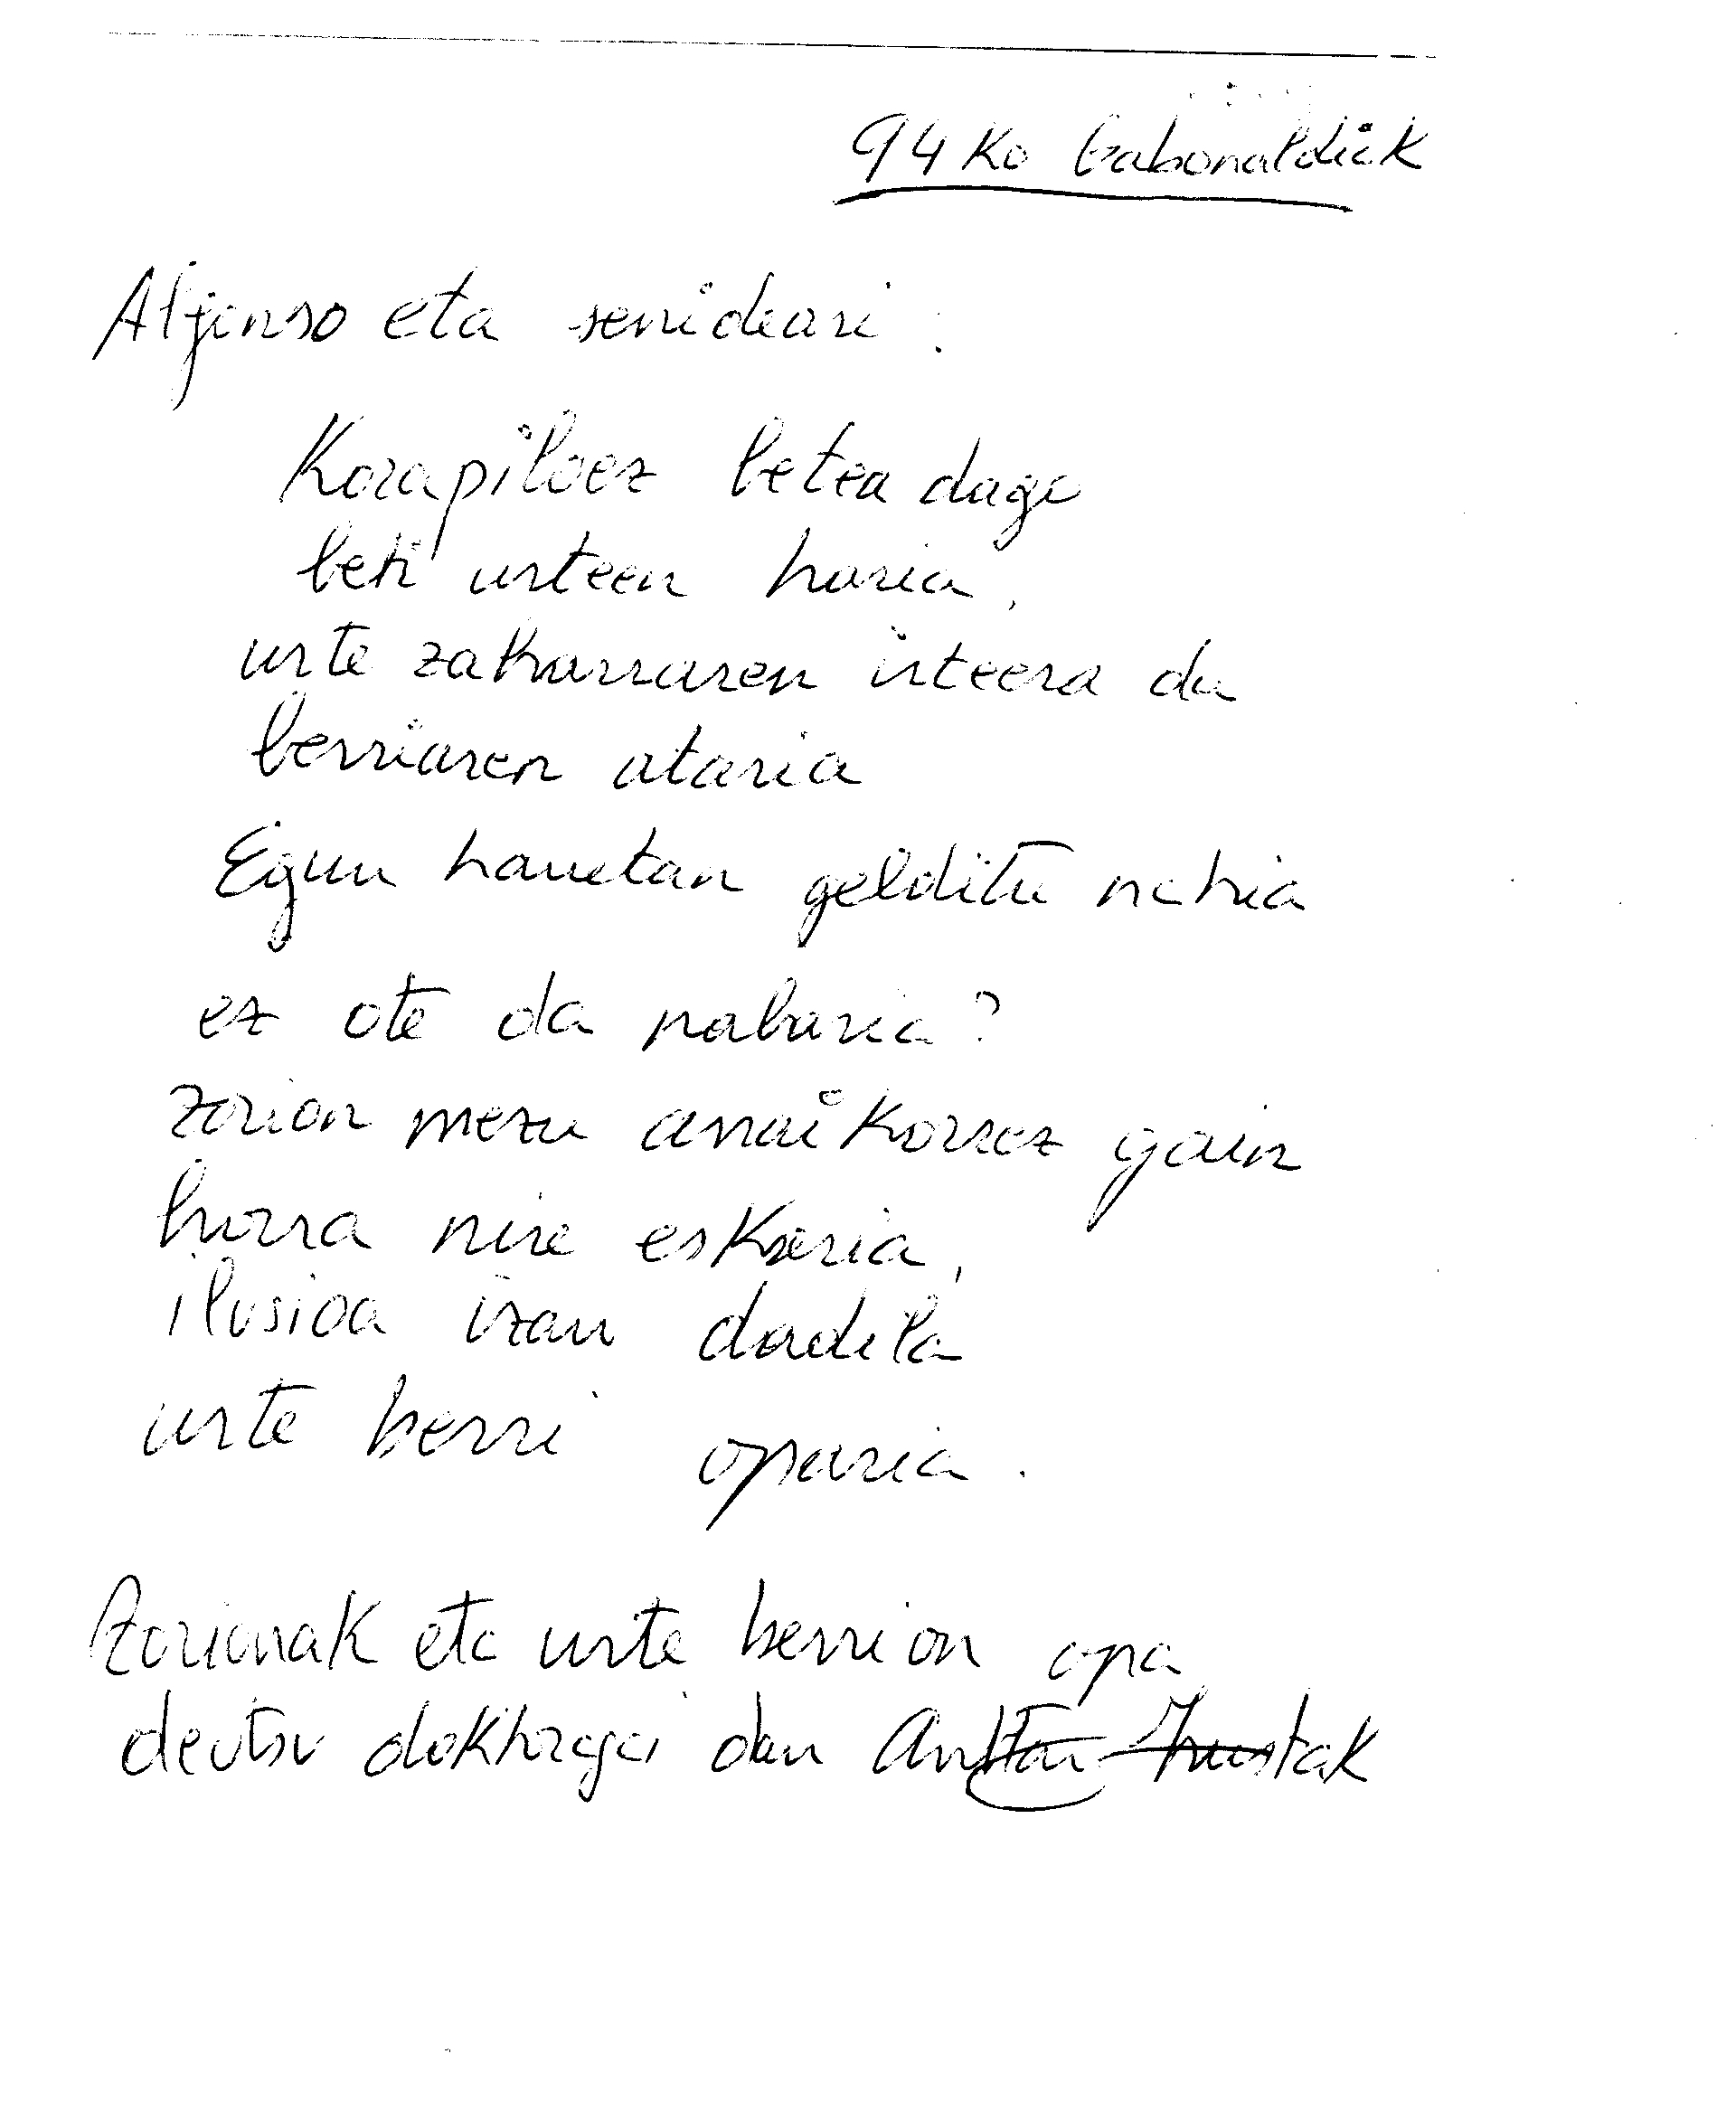 94ko Gabonaldiak
Alfonso eta senideari:
Korapiloez betea dago
beti urteen haria,
urte zaharraren irteera da
berriaren ataria
Egun hauetan gelditu nahia
ez ote da nabaria?
Zorion mezu anaikorrez gain
horra nire eskaria,
ilusioa izan dadila
urte berri oparia.
Zorionak eta urte berri on opa
deutsu doktoregai dan